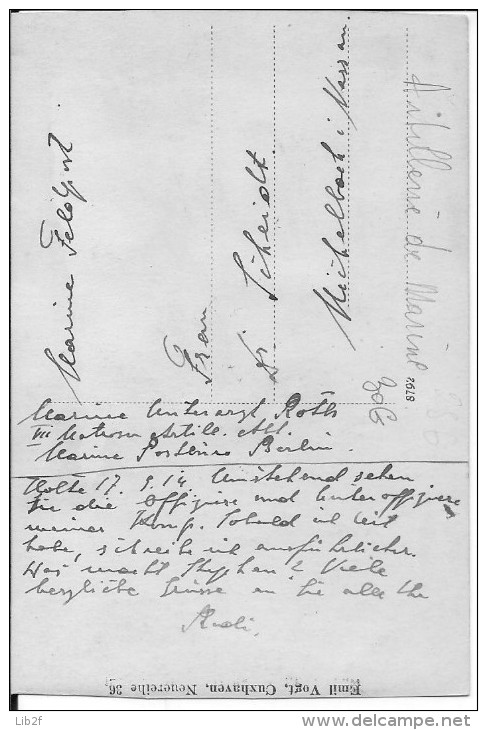 Marine Feldpost
Frau
Dr. Scheidt.
Michelbach i Nassau.
Artillerie de Marine
8192
Marine Unterarzt Roth
III Matrosen Artill. Abt.
Marine Postbüro Berlin.
17. 9. 14. Umstehend sehen
Sie die Offiziere und Unteroffiziere
meiner Komp. Sobald ich Zeit
habe, schreibe ich ausführlicher.
Was macht Stephan? Viele
herzliche Grüsse an Sie alle Ihr
Rudi.
Emil Vogt, Cuxhaven, Neuereihe 36
Lib2f
www.delcampe.net